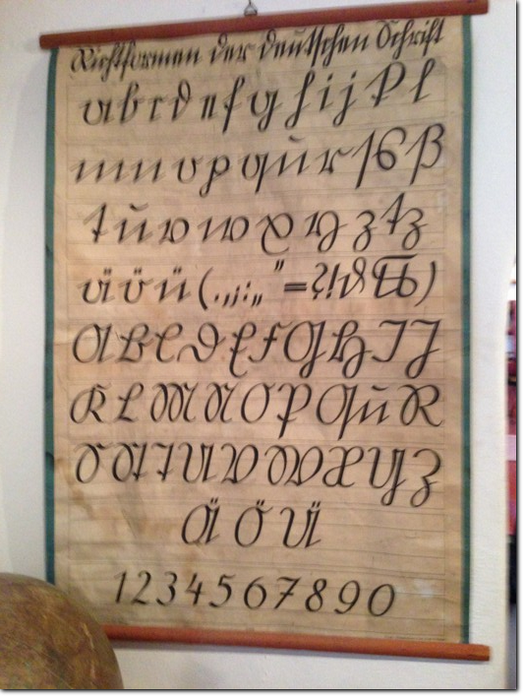 Richtformen der deutschen Schrift
a b c d e f g h i j k l
m n o p qu r ſ s ß
t u v w x y z tz
ä ö ü ( . , ; : „ " = ? ! )
A B C D E F G H I J
K L M N O P Qu R
S St T U V W X Y Z
Ä Ö Ü
1 2 3 4 5 6 7 8 9 0